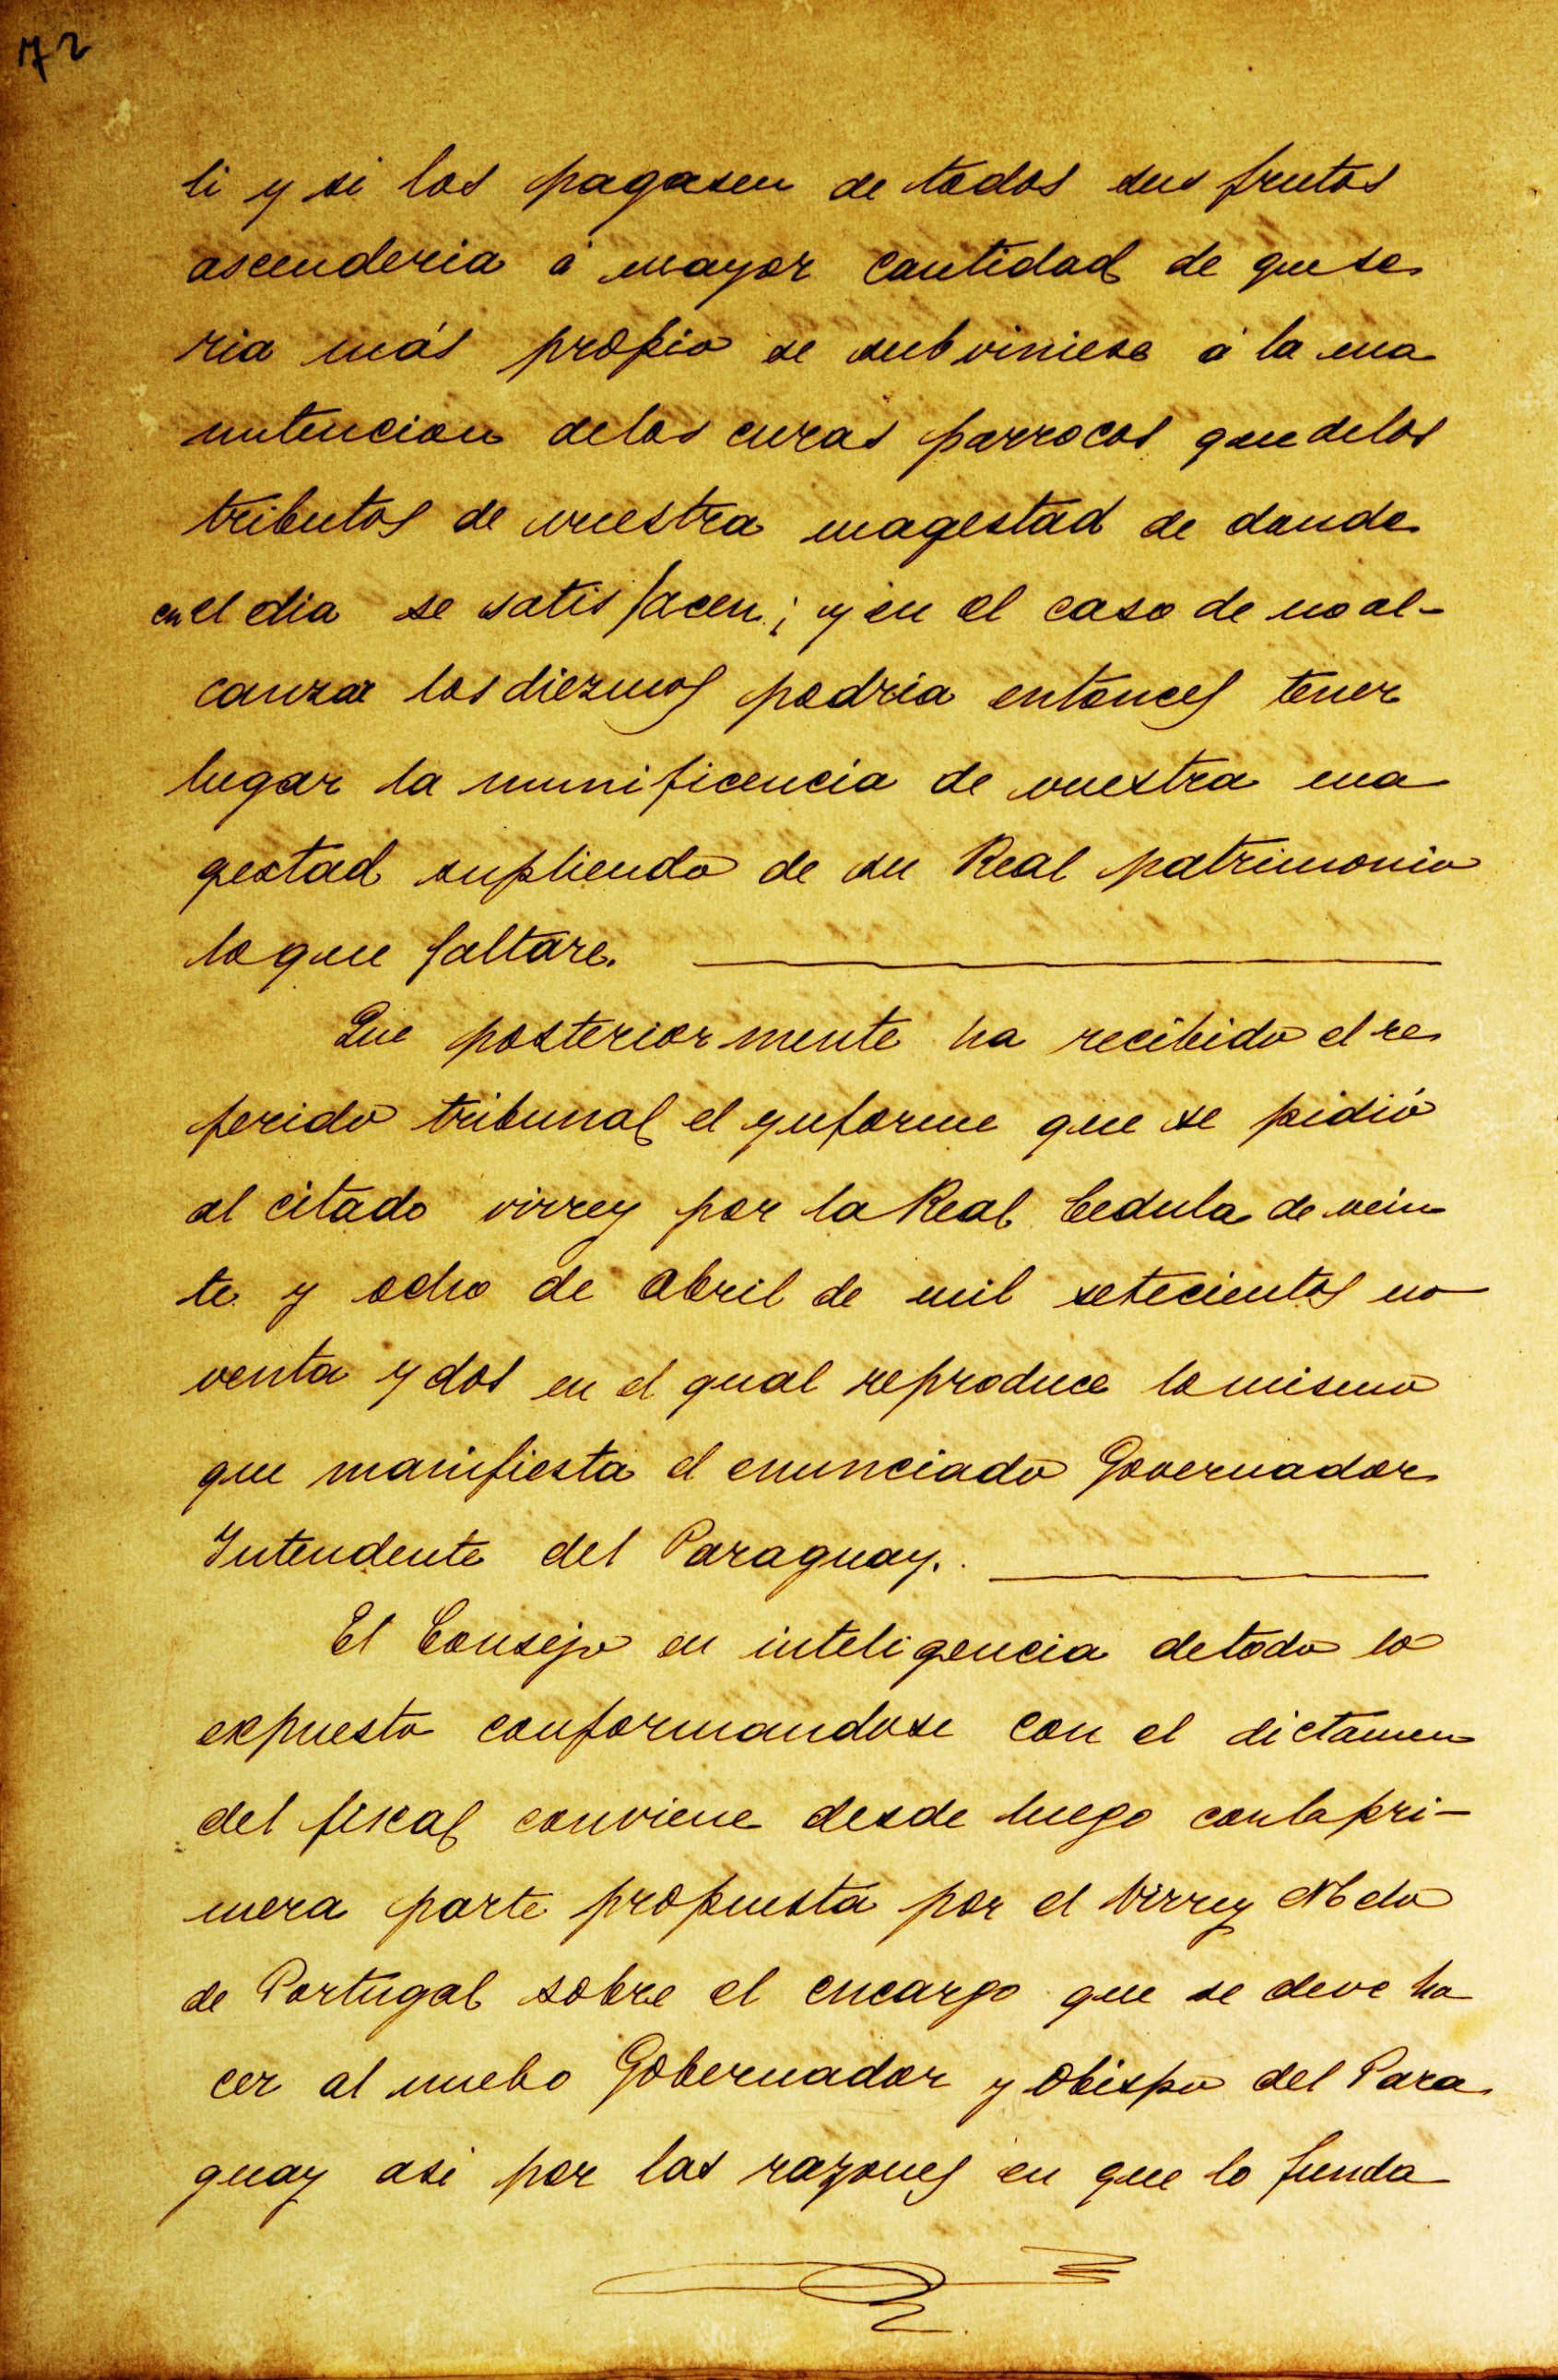 72
li y si los pagasen de todos sus frutos
ascenderia á mayor cantidad de que se
ria más propio se subviniese á la ma
nutencion delos curas parrocos que delos
tributos de vuestra magestad de donde
en el dia se satisfacen; y en el caso de no al-
canzar los diezmos podria entonces tener
lugar la munificencia de vuestra ma
gestad supliendo de su Real patrimonio
lo que faltare.
Que posteriormente ha recibido el re
ferido tribunal el ynforme que se pidió
al citado virrey por la Real Cedula de vein
te y ocho de abril de mil setecientos no
venta y dos en el qual reproduce lo mismo
que manifiesta el enunciado Governador
Intendente del Paraguay.
El Consejo en inteligencia detodo lo
expuesto conformandose con el dictamen
del fiscal conviene desde luego con la pri-
mera parte propuesta por el Virrey Melo
de Portugal sobre el encargo que se deve ha
cer al nuebo Gobernador y obispo del Para
guay asi por las razones en que lo funda